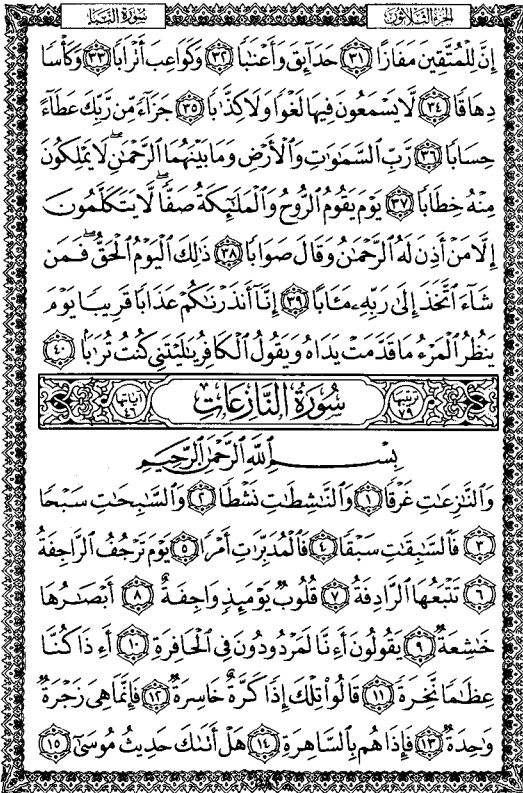 الجزء الثلاثون
سورة النبإ
إِنَّ لِلْمُتَّقِينَ مَفَازًا ٣١ حَدَآئِقَ وَأَعْنَٰبًا ٣٢ وَكَوَاعِبَ أَتْرَابًا ٣٣ وَكَأْسًا
دِهَاقًا ٣٤ لَّا يَسْمَعُونَ فِيهَا لَغْوًا وَلَا كِذَّٰبًا ٣٥ جَزَآءً مِّن رَّبِّكَ عَطَآءً
حِسَابًا ٣٦ رَّبِّ ٱلسَّمَٰوَٰتِ وَٱلْأَرْضِ وَمَا بَيْنَهُمَا ٱلرَّحْمَٰنِ ۖ لَا يَمْلِكُونَ
مِنْهُ خِطَابًا ٣٧ يَوْمَ يَقُومُ ٱلرُّوحُ وَٱلْمَلَٰٓئِكَةُ صَفًّا ۖ لَّا يَتَكَلَّمُونَ
إِلَّا مَنْ أَذِنَ لَهُ ٱلرَّحْمَٰنُ وَقَالَ صَوَابًا ٣٨ ذَٰلِكَ ٱلْيَوْمُ ٱلْحَقُّ ۖ فَمَن
شَآءَ ٱتَّخَذَ إِلَىٰ رَبِّهِۦ مَـَٔابًا ٣٩ إِنَّآ أَنذَرْنَٰكُمْ عَذَابًا قَرِيبًا يَوْمَ
يَنظُرُ ٱلْمَرْءُ مَا قَدَّمَتْ يَدَاهُ وَيَقُولُ ٱلْكَافِرُ يَٰلَيْتَنِي كُنتُ تُرَٰبًا ٤٠
ترتيبها ٧٩ سُورَةُ النَّازِعَاتِ آياتها ٤٦
بِسْمِ ٱللَّهِ ٱلرَّحْمَٰنِ ٱلرَّحِيمِ
وَٱلنَّٰزِعَٰتِ غَرْقًا ١ وَٱلنَّٰشِطَٰتِ نَشْطًا ٢ وَٱلسَّٰبِحَٰتِ سَبْحًا
٣ فَٱلسَّٰبِقَٰتِ سَبْقًا ٤ فَٱلْمُدَبِّرَٰتِ أَمْرًا ٥ يَوْمَ تَرْجُفُ ٱلرَّاجِفَةُ
٦ تَتْبَعُهَا ٱلرَّادِفَةُ ٧ قُلُوبٌ يَوْمَئِذٍ وَاجِفَةٌ ٨ أَبْصَٰرُهَا
خَٰشِعَةٌ ٩ يَقُولُونَ أَءِنَّا لَمَرْدُودُونَ فِي ٱلْحَافِرَةِ ١٠ أَءِذَا كُنَّا
عِظَٰمًا نَّخِرَةً ١١ قَالُوا۟ تِلْكَ إِذًا كَرَّةٌ خَاسِرَةٌ ١٢ فَإِنَّمَا هِيَ زَجْرَةٌ
وَٰحِدَةٌ ١٣ فَإِذَا هُم بِٱلسَّاهِرَةِ ١٤ هَلْ أَتَىٰكَ حَدِيثُ مُوسَىٰٓ ١٥